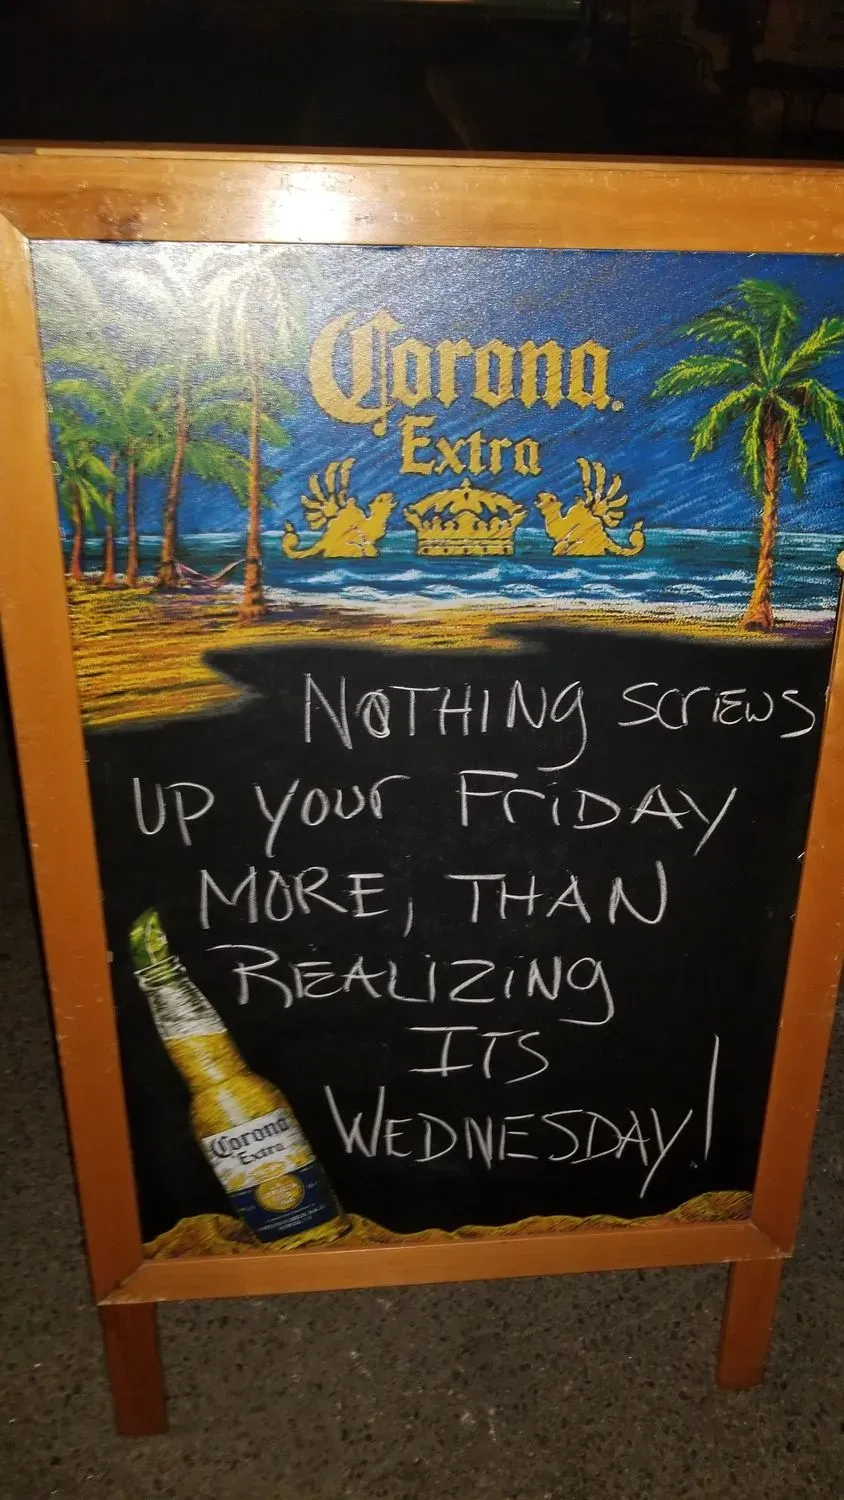 Corona
Extra
NOTHING SCREWS
UP YOUR FRIDAY
MORE, THAN
REALIZING
ITS
WEDNESDAY!
Corona
Extra